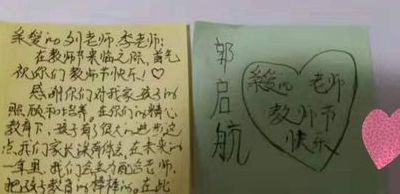 亲爱的刘老师、李老师:
在教师节来临之际,首先
祝你们教师节快乐!♡
感谢你们对我家孩子的
照顾和培养。在你们的精心
教育下,孩子有很大的进步,这
点,我们家长 在未来的
一年里,我们会全力配合老师,
把孩子教育的棒棒的。在此
郭启航
亲爱的 老师
教师节
快乐